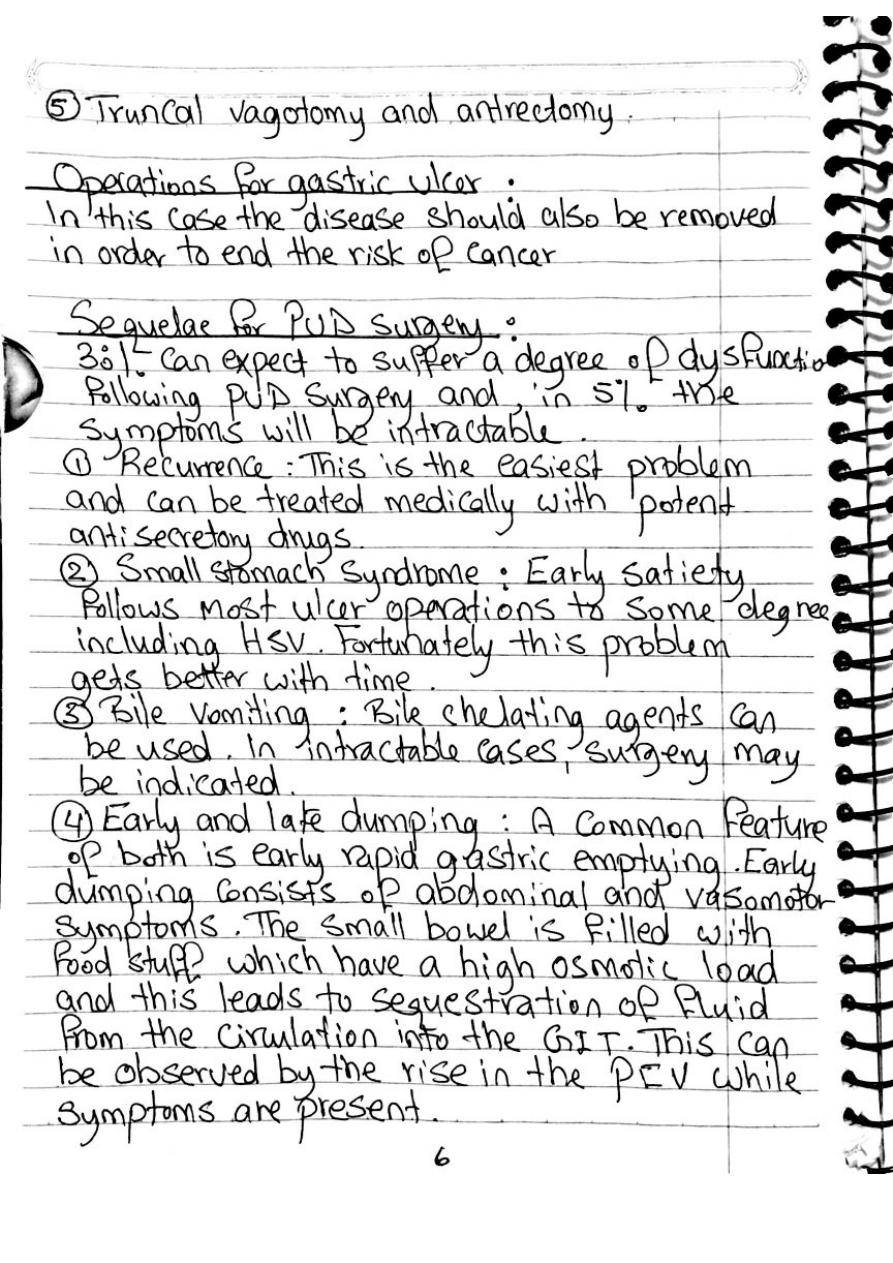 ⑤ Truncal vagotomy and antrectomy.
Operations for gastric ulcer :
In this case the disease should also be removed
in order to end the risk of cancer
Sequelae for PUD surgery :
30% can expect to suffer a degree of dysfunctio
following PUD surgery and, in 5% the
symptoms will be intractable.
① Recurrence : This is the easiest problem
and can be treated medically with potent
antisecretory drugs.
② Small stomach syndrome : Early satiety
follows most ulcer operations to some degree
including HSV. Fortunately this problem
gets better with time.
③ Bile vomiting : Bile chelating agents can
be used. In intractable cases, surgery may
be indicated.
④ Early and late dumping : A common feature
of both is early rapid gastric emptying. Early
dumping consists of abdominal and vasomotor
symptoms. The small bowel is filled with
food stuff which have a high osmotic load
and this leads to sequestration of fluid
from the circulation into the GIT. This can
be observed by the rise in the PCV while
symptoms are present.
6